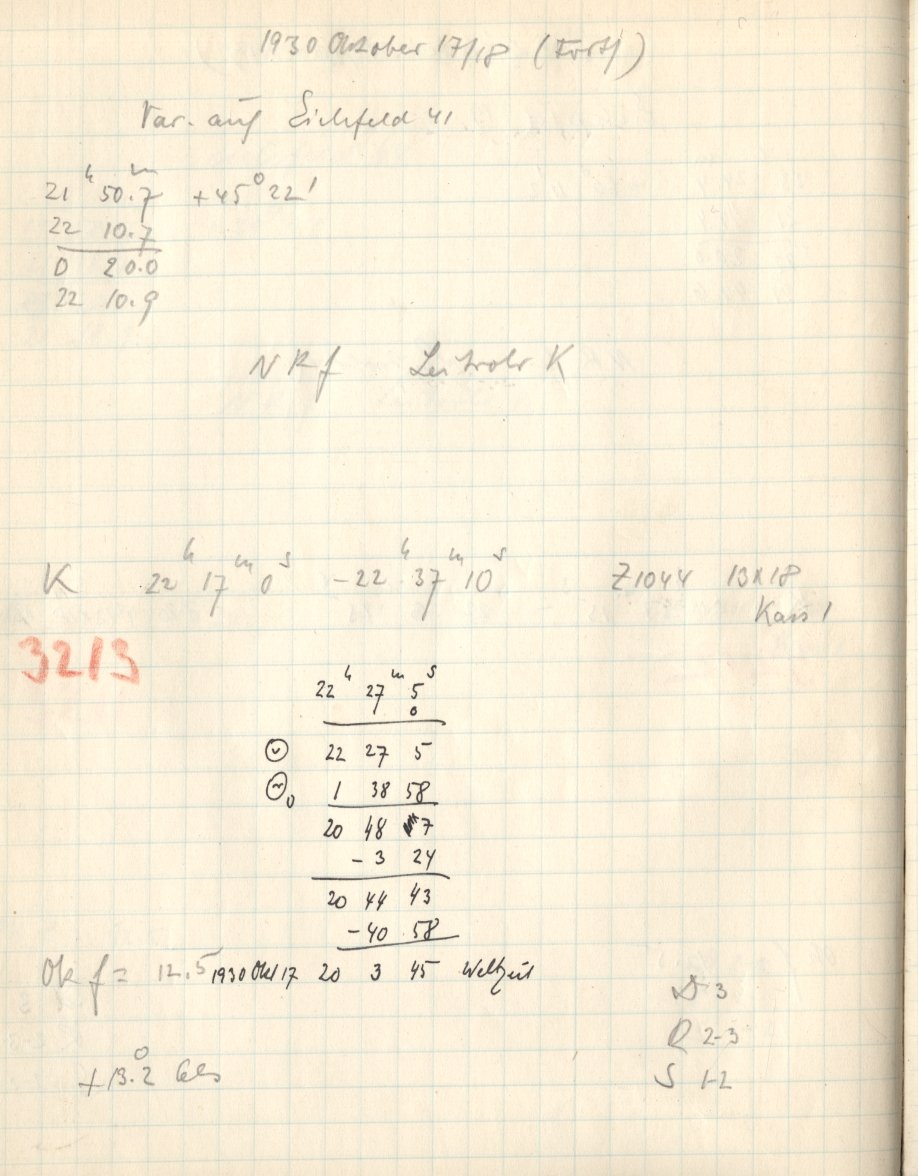 1930 Oktober 17/18 (Forts)
Var. auf Eichfeld 41
21ʰ 50.7ᵐ +45° 22'
22 10.7
0 20.0
22 10.9
N R f Leitrohr K
K 22ʰ 17ᵐ 0ˢ - 22ʰ 37ᵐ 10ˢ Z1044 13x18
Kass 1
3213
22ʰ 27ᵐ 5ˢ
0
22 27 5
1 38 58
20 48 7
- 3 24
20 44 43
- 40 58
Ok f = 12.5 1930 Okt 17 20 3 45 Weltzeit
D 3
R 2-3
+13.°2 Cels
S 1-2